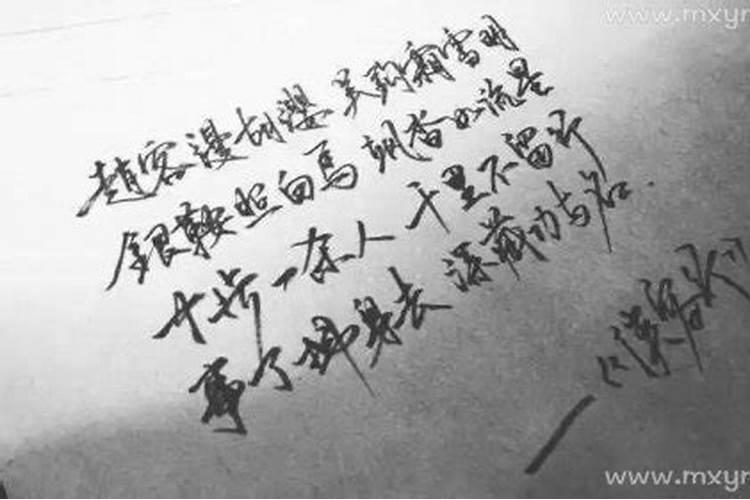 www.mxyr
趙客漫胡纓 吴鈎霜雪明
銀鞍照白马 飒沓如流星
十步一杀人 千里不留行
事了拂身去 深藏功与名.
—《俠客行》
www.mxyr